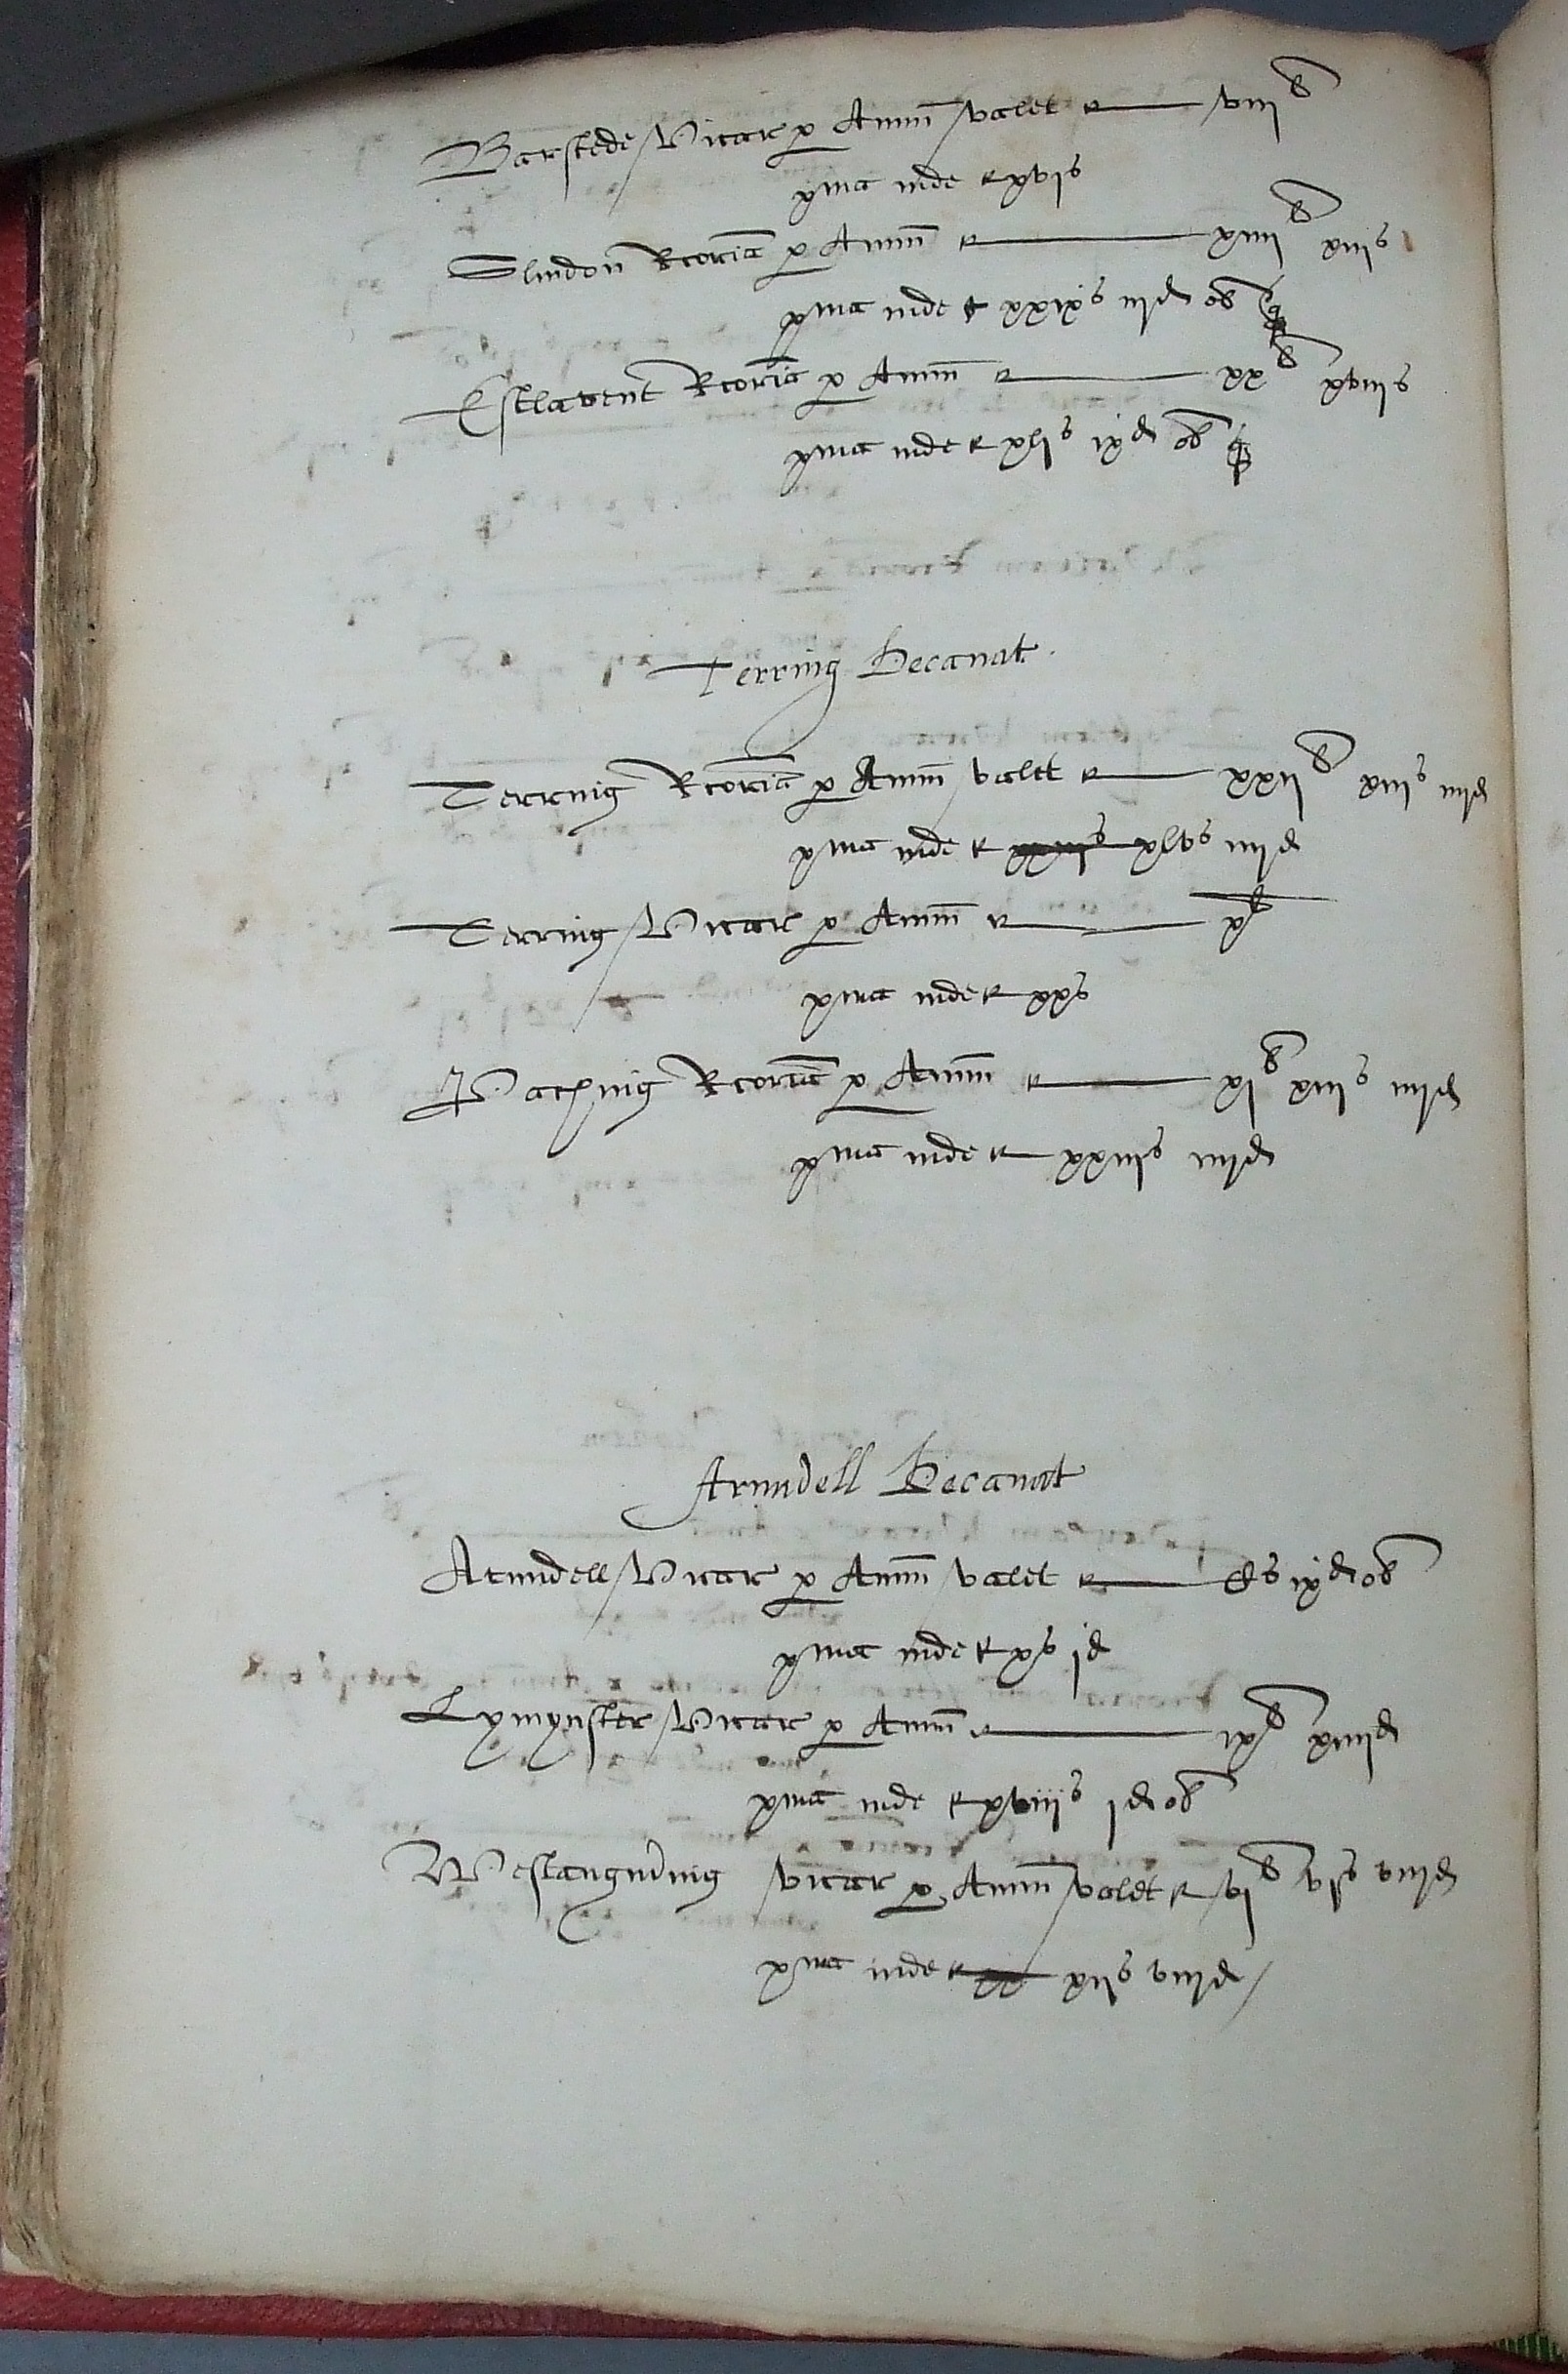 Barstede Vicar p Annū valet — viijli
xma inde — xvjs
Slindon Rcoria p Annū — xiiijli xiijs
xma inde xxixs iijd ob q
Estlavent Rcoria p Annū — xxli xviijs
xma inde xljs ixd ob q
Terring Decanat.
Terring Rcoria p Annū valet — xxijli xiijs iiijd
xma inde xlvs iiijd
Terring Vicar p Annū — xli
xma inde xxs
Patching Rcoria p Annū — xjli xiijs iiijd
xma inde — xxiijs iiijd
Arundell Decanat
Arundell Vicar p Annū valet — Cls ixd ob
xma inde xvs jd
Lymynster Vicar p Annū — ixli xiiijd
xma inde xviijs jd ob
Westangmering vicar p Annū valet vjli vjs viijd
xma inde xijs viijd